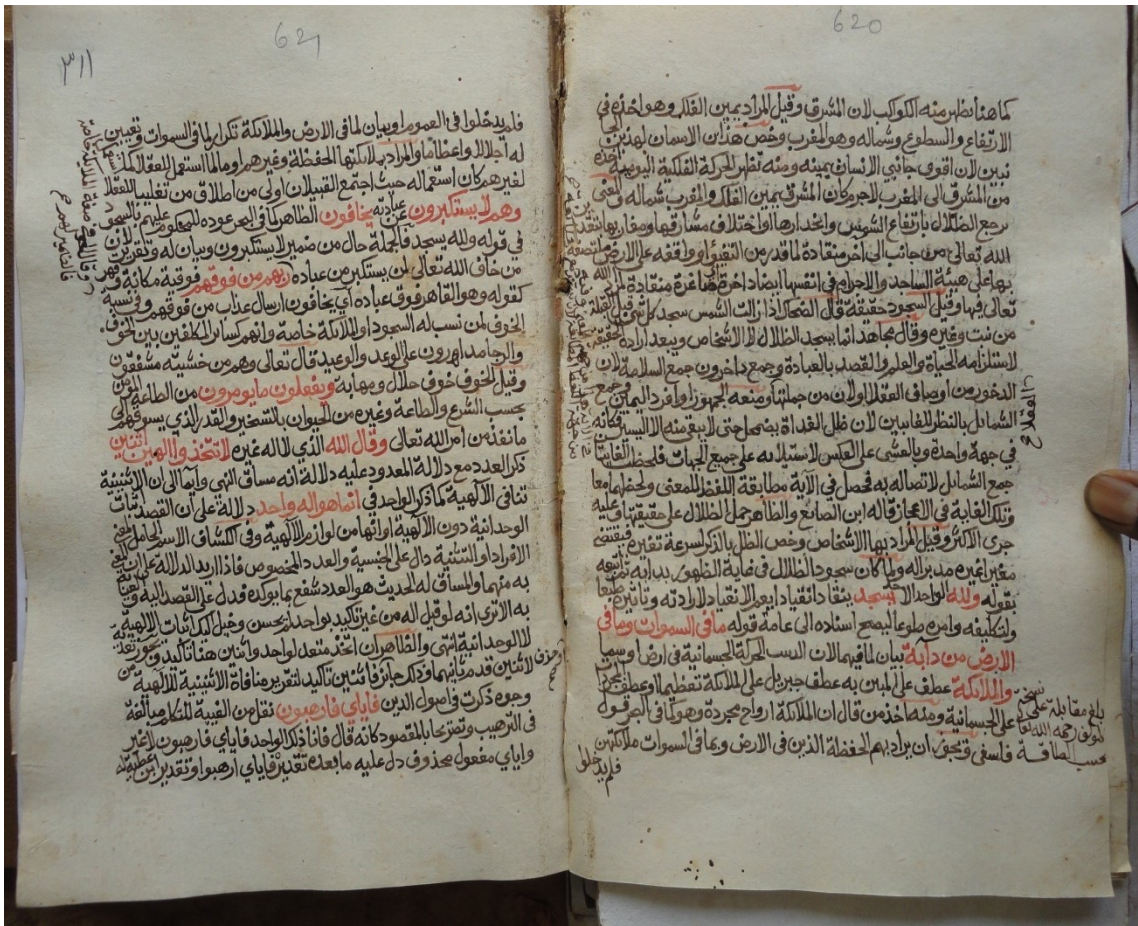 620
كما هنا يظهر منه الكواكب لان المشرق وقيل المراد يمين الفلك وهو اخذه في
الارتفاع والسطوع وشماله وهو المغرب وخص هذان الاسمان لهذين الجا
نبين لان اقوى جانبي الانسان يمينه ومنه تظهر الحركة الفلكية اليومية اخذة
من المشرق الى المغرب لاجرم كان المشرق يمين الفلك والمغرب شماله والمعنى
ترجع الظلال بارتفاع الشمس وانحدارها او اختلاف مشارقها ومغاربها بتقدير
الله تعالى من جانب الى اخر منقادة لما قدر من التفيؤ او واقفة على الارض
بها على هيئة الساجد والاجرام في انفسها ايضا داخرة صاغرة منقادة لمراد الله
تعالى فيها وقيل السجود حقيقة قال الضحاك اذا زالت الشمس سجد كل شئ قبل القبلة
من نبت وغيره وقال مجاهد انما يسجد الظلال لا الاشخاص ويبعد ارادة حقيقته
لاستلزامه الحياة والعلم والقصد بالعبادة وجمع داخرون جمع السلامة لان
الدخور من اوصاف العقلا اولان من جملتها ومنعه الجمهور وافرد اليمين وجمع
الشمائل بالنظر للغايتين لان ظل الغداة يضمحل حتى لا يبقى منه الا اليسير فكانه
في جهة واحدة وبالعشي على العكس لاستيلائه على جميع الجهات فلحظت الغايتان
جمع الشمائل لاتصاله به فحصل في الآية مطابقة اللفظ للمعنى ولحظهما معا
وتلك الغاية في الاعجاز قاله ابن الصائغ والظاهر حمل الظلال على حقيقتها وعليه
جرى الاكثر وقيل المراد بها الاشخاص وخص الظل بالذكر لسرعة تغيره فيقتضي
مغيرا غيره مدبرا له ولما كان سجود الظلال في غاية الظهور بدا به ثم اتبعه
بقوله ولله الواحد الاحد يسجد ينقاد انقيادا يعم الانقياد لارادته وتاثيره طبعا
ولتكليفه وامره طوعا ليصح اسناده الى عامة قوله ما في السموات وما في
الارض من دآبة بيان لما فيهما لان الدبيب الحركة الجسمانية في ارض او سما
والملائكة عطف على المبين به عطف جبريل على الملائكة تعظيما او عطف
على الجسمانية ومنه اخذ من قال ان الملائكة ارواح مجردة وهو كما في البحر قول
فلسفي ويجوز ان يراد بهم الحفظة الذين في الارض وبما في السموات ملائكتهن
فلم يدخلوا
بلغ مقابلة على نسخ
المولف رحمه الله تعالى
حسب الطاقة
621
٣١١
فلم يدخلوا في العموم او بيان لما في الارض والملائكة تكرار لما في السموات وتعيين
له اجلالا واعظاما والمراد بملائكتها الحفظة وغيرهم وما لما استعمل للعقلا كما
لغيرهم كان استعماله حيث اجتمع القبيلان اولى من اطلاق من تغليبا للعقلا
وهم لا يستكبرون عن عبادته يخافون الظاهر كما في البحر عوده للمحكوم عليهم بالسجود
في قوله ولله يسجد فالجملة حال من ضمير لا يستكبرون وبيان له وتقرير لان
من خاف الله تعالى لن يستكبر من عباده ربهم من فوقهم فوقية مكانة وقهر
كقوله وهو القاهر فوق عباده اي يخافون ارسال عذاب من فوقهم وفي نسبة
الخوف لمن نسب له السجود او الملائكة خاصة وانهم كسائر المكلفين بين الخوف
والرجا مدارهون على الوعد والوعيد قال تعالى وهم من خشيته مشفقون
وقيل الخوف خوف جلال ومهابة ويفعلون ما يومرون من الطاعة
بحسب الشرع والطاعة وغيره من الحيوان بالتسخير والقدر الذي يسوقهم الى
ما نفذ من امر الله تعالى وقال الله الذي لا اله غيره لا تتخذوا الهين اثنين
ذكر العدد مع دلالة المعدود عليه دلالة انه مساق النهي وايما الى ان الاثنينية
تنافي الآلهية كما ذكر الواحد في انما هو اله واحد دلالة على ان القصد اثبات
الوحدانية دون الآلهية او انها من لوازم الآلهية وفي الكشاف الاسم الحامل لمعنى
الافراد او التثنية دال على الجنسية والعدد المخصوص فاذا اريد الدلالة على ان المعنى
به منهما والمساق له الحديث هو العدد شفع بما يوكده فدل على القصد اليه والعناية
به الا ترى انه لو قيل اله من غير تاكيد بواحد لم يحسن وخيل انك اثبات الالهية
لا الوحدانية انتهى والظاهر ان اتخذ متعد لواحد واثنين هنا تاكيد
لاثنين قدم ثانيهما وذلك جائز فاثنين تاكيد لتقرير منافاة الاثنينية للالهية من
وجوه ذكرت في اصول الدين فاياي فارهبون نقل من الغيبة للتكلم مبالغة
في الترهيب وتصريحا بالمقصود كانه قال فانا ذلك الواحد فاياي فارهبون لا غير
واياي مفعول محذوف دل عليه ما بعده تقديره فاياي ارهبوا وتقدير ابن عطية